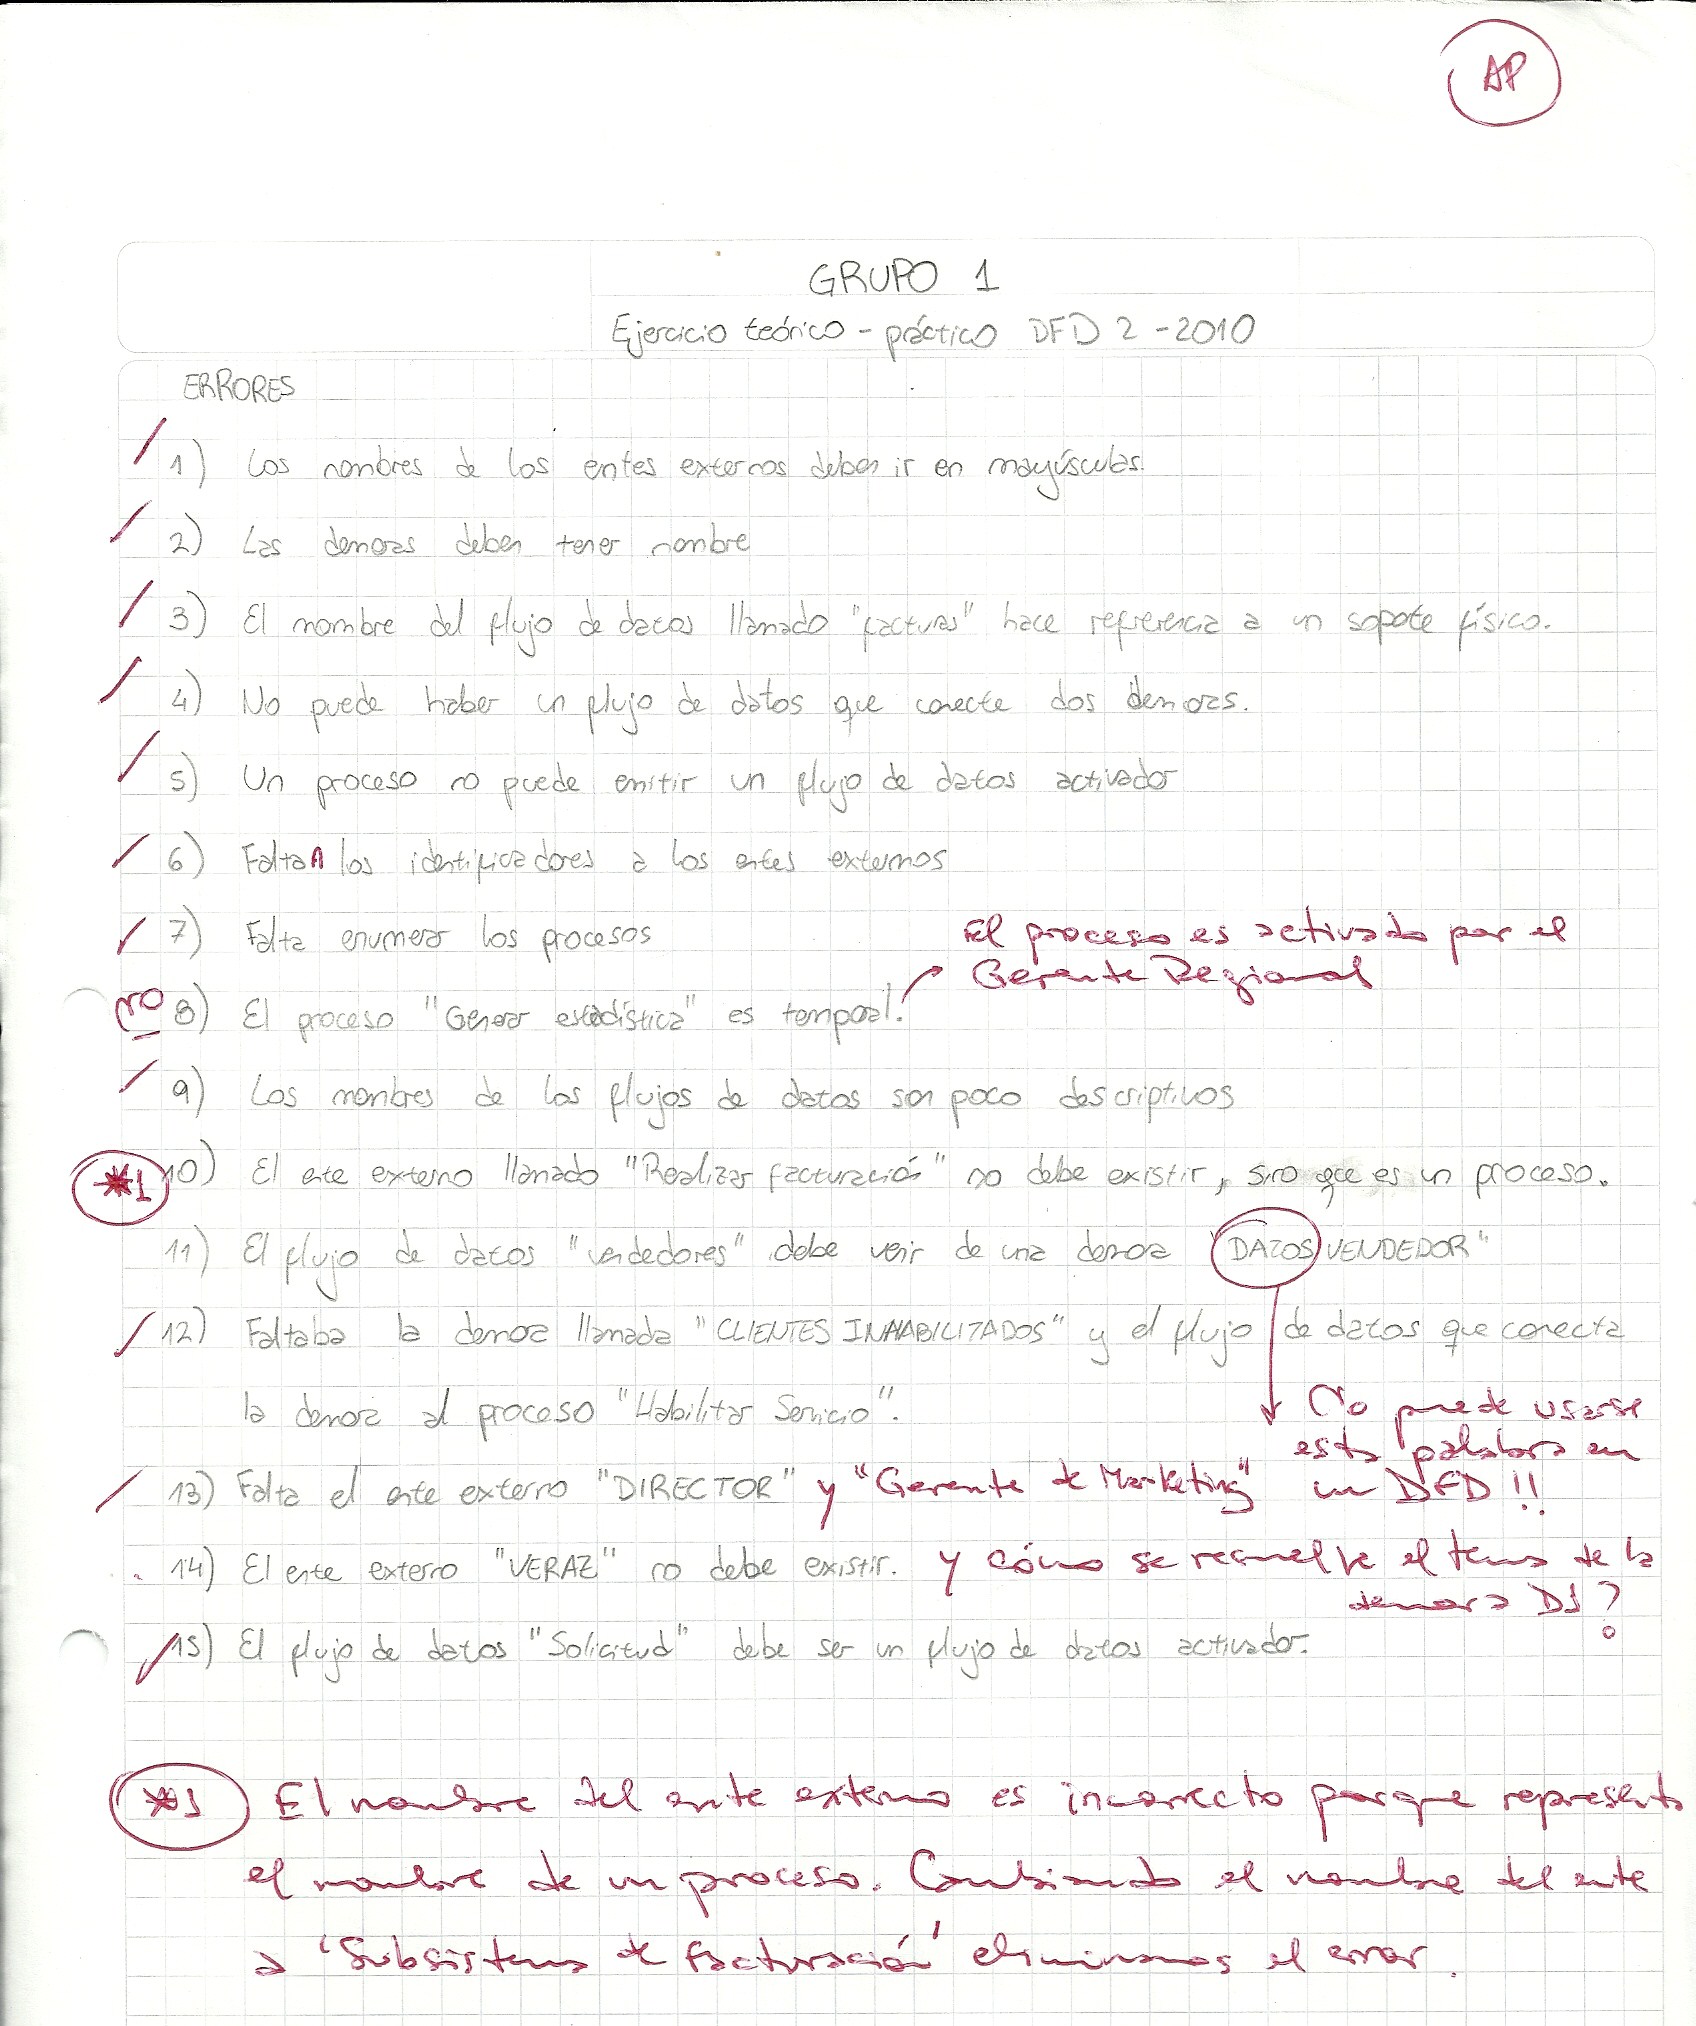 AP
GRUPO 1
Ejercicio teórico - práctico DFD 2 - 2010
ERRORES
1) Los nombres de los entes externos deben ir en mayúsculas.
2) Las demoras deben tener nombre
3) El nombre del flujo de datos llamado "facturas" hace referencia a un sopote físico.
4) No puede haber un flujo de datos que conecte dos demoras.
5) Un proceso no puede emitir un flujo de datos activador
6) Faltan los identificadores a los entes externos
7) Falta enumerar los procesos
El proceso es activado por el
Gerente Regional
no 8) El proceso "Generar estadística" es temporal.
9) Los nombres de los flujos de datos son poco descriptivos
*1 10) El ente externo llamado "Realizar facturación" no debe existir, sino que es un proceso.
11) El flujo de datos "vendedores" debe venir de una demora "DATOS VENDEDOR"
12) Faltaba la demora llamada "CLIENTES INHABILITADOS" y el flujo de datos que conecta
la demora al proceso "Habilitar Servicio".
No puede usarse
esta palabra en
un DFD !!
13) Falta el ente externo "DIRECTOR" y "Gerente de Marketing"
14) El ente externo "VERAZ" no debe existir. y cómo se resuelve el tema de la
demora D1?
15) El flujo de datos "Solicitud" debe ser un flujo de datos activador.
*1 El nombre del ente externo es incorrecto porque representa
el nombre de un proceso. Cambiando el nombre del ente
a 'Subsistema de facturación' eliminamos el error.